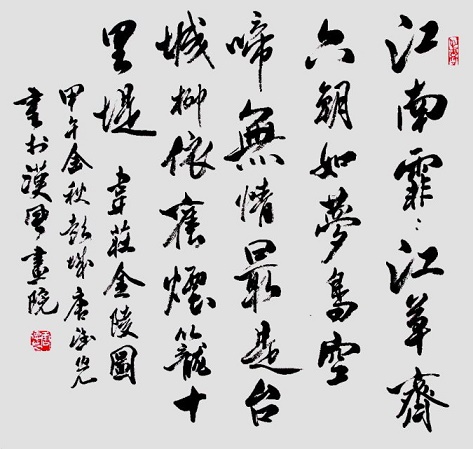 江南霏〻江草齊
六朝如夢鳥空
啼無情最是台
城柳依舊煙籠十
里堤 韋莊金陵圖
甲午金秋彭城唐
書於漢風畫院